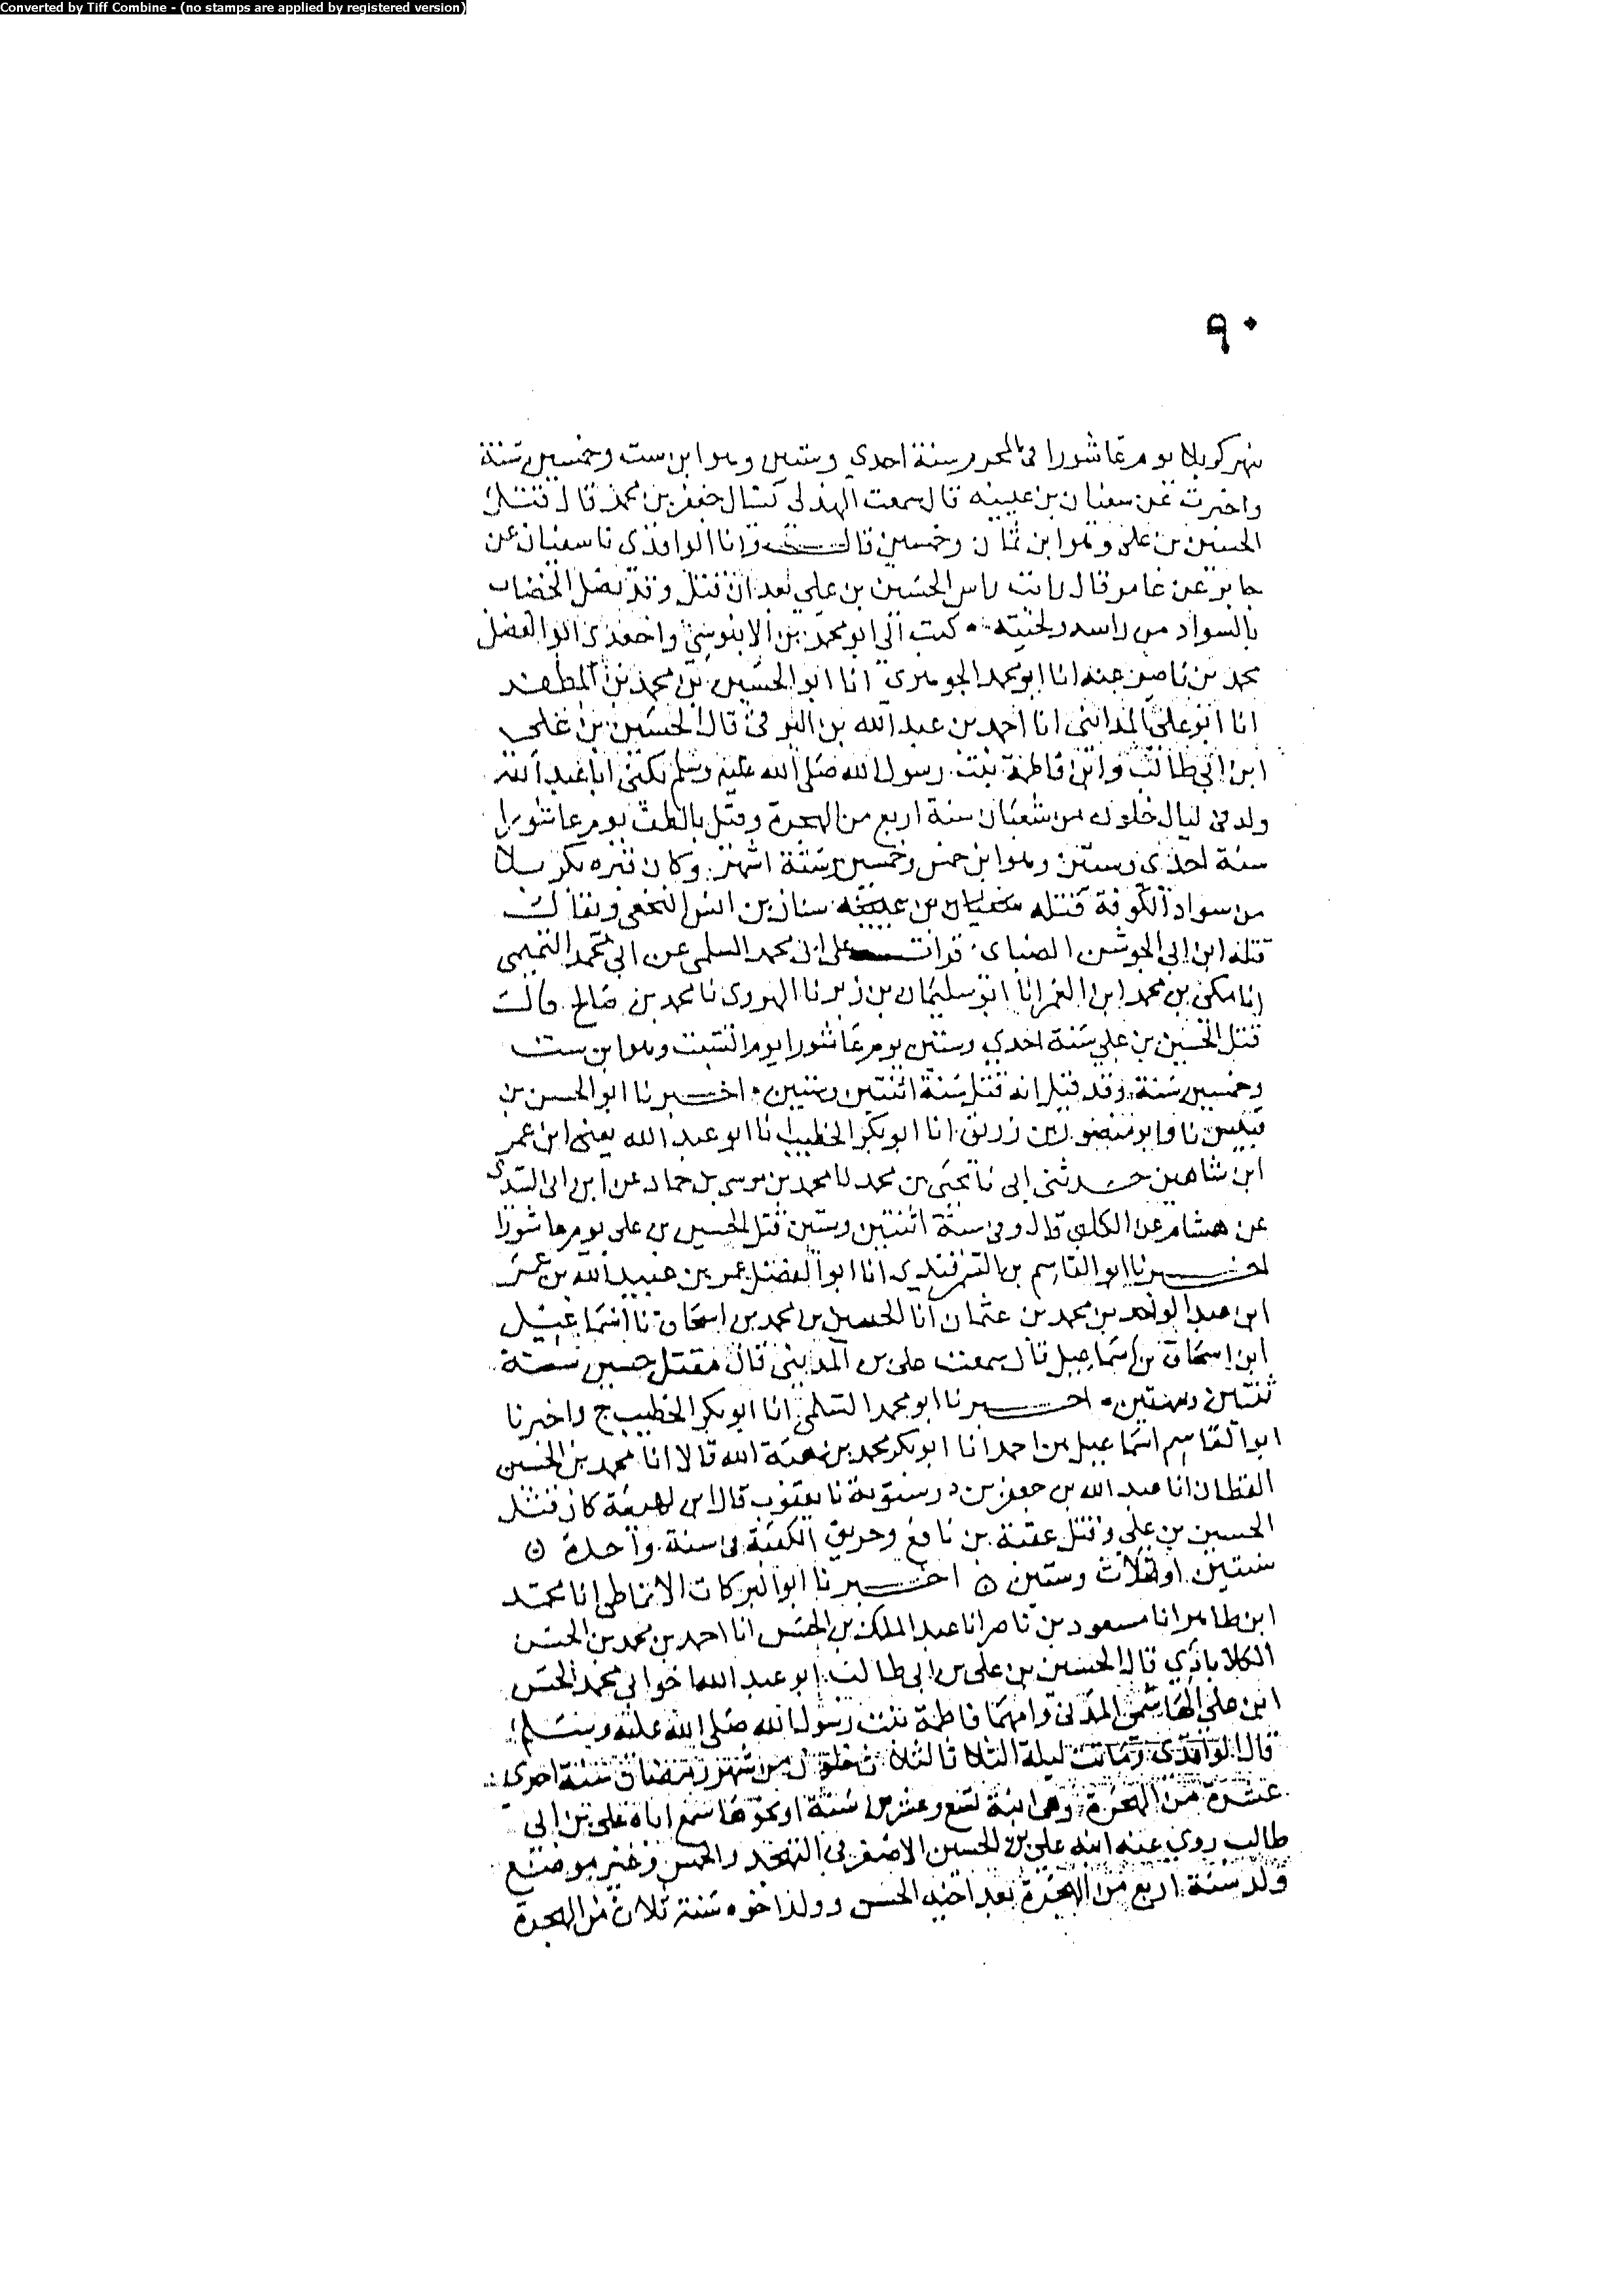 Converted by Tiff Combine - (no stamps are applied by registered version)
٩٠
بنهر كربلا يوم عاشورا في المحرم سنة احدي وستين وهو ابن ست وخمسين سنة
واخبرت عن سفيان بن عيينه قال سمعت الهذلي يسال جعفر بن محمد قال قتل
الحسين بن علي وهو ابن ثمان وخمسين قال وانا الواقدي نا سفيان عن
جابر عن عامر قال رايت راس الحسين بن علي بعد ان قتل وقد نصل الخضاب
بالسواد من راسه ولحيته كتب الي ابو محمد بن الابنوسي واخبرني ابو الفضل
محمد بن ناصر عنه انا ابو محمد الجوهري انا ابو الحسين بن محمد بن المظفر
انا ابو علي المدايني انا احمد بن عبد الله بن البرقي قال الحسين بن علي
ابن ابي طالب وابن فاطمة بنت رسول الله صلى الله عليه وسلم يكنى ابا عبد الله
ولد في ليال خلون من شعبان سنة اربع من الهجرة وقتل بالطف يوم عاشورا
سنة احدى وستين وهو ابن خمس وخمسين وستة اشهر وكان قبره بكربلا
من سواد الكوفة قتله سنان بن انس النخعي ويقال
قتله ابن ابي الجوشن الضبابي قرات على ابي محمد السلمي عن ابي محمد التميمي
انا مكي بن محمد ابن الغمر انا ابو سليمان بن زبر نا الهروي نا محمد بن صالح قال
قتل الحسين بن علي سنة احدي وستين يوم عاشورا يوم السبت وهو ابن ست
وخمسين سنة وقد قيل انه قتل سنة اثنتين وستين اخبرنا ابو الحسن بن
قبيس نا وابو منصور بن زريق انا ابو بكر الخطيب نا ابو عبد الله يعني ابن عمر
ابن شاهين حدثني ابي نا يحيى بن محمد نا محمد بن موسى بن حماد عن ابن ابي السدي
عن هشام عن الكلبي قال وفي سنة اثنتين وستين قتل الحسين بن علي يوم عاشورا
اخبرنا ابو القاسم بن السمرقندي انا ابو الفضل عمر بن عبيد الله بن عمر
ابن عبد الواحد بن محمد بن عثمان انا الحسين بن محمد بن اسحاق نا اسماعيل
ابن اسحاق بن اسماعيل قال سمعت علي بن المديني قال مقتل حسين سنة
ثنتين وستين اخبرنا ابو محمد السلمي انا ابو بكر الخطيب ح واخبرنا
ابو القاسم اسماعيل بن احمد انا ابو بكر محمد بن هبة الله قالا انا محمد بن الحسين
القطان انا عبد الله بن جعفر بن درستوية نا يعقوب قال ابن لهيعة كان قتل
الحسين بن علي وقتل عقبة بن نافع وحريق الكعبة في سنة واحدة
سنتين او ثلاث وستين اخبرنا ابو البركات الانماطي انا محمد
ابن طاهر انا مسعود بن ناصر انا عبد الملك بن الحسن انا احمد بن محمد بن الحسن
الكلاباذي قال الحسين بن علي بن ابي طالب ابو عبد الله اخو ابي محمد الحسن
ابن علي الهاشمي المدني وامهما فاطمة بنت رسول الله صلى الله عليه وسلم
قال الواقدي وماتت ليلة الثلاثا لثلاث خلون من شهر رمضان سنة احدي
عشرة من الهجرة وهي ابنة تسع وعشرين سنة او نحوها سمع اباه علي بن ابي
طالب روي عنه ابنه علي بن الحسين الاصغر في التهجد والخمس وغير موضع
ولد سنة اربع من الهجرة بعد اخيه الحسن وولد اخوه سنة ثلاث من الهجرة